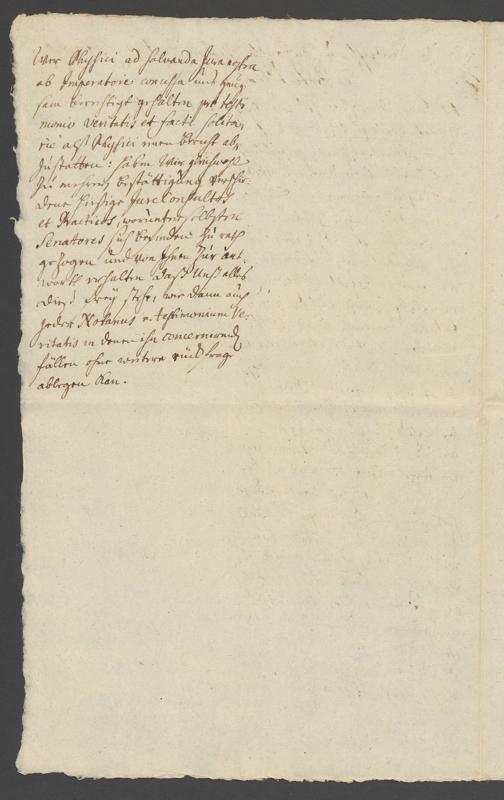 Wir Physici ad salvanda Jura nostra
ab Imperatore concessa uns genug
sam berechtigt gehalten pro testi
monio veritatis et facti solita,
rie alß Physici einen Bericht ab,
zustatten: haben Wir gleichwohl
zu mehrer bestättigung verschie
dene hiesige JureConsultos
et Practicos, worunter selbsten
Senatores sich befinden zu rath
gezogen und von Ihnen zur ant,
wortt erhalten daß Unß alles
dieses frey stehe, wie dann auch
jeder Notarius testimonium Ve,
ritatis in denen ihn concernirenden
fällen ohne weitere rückfrage
ablegen kan.